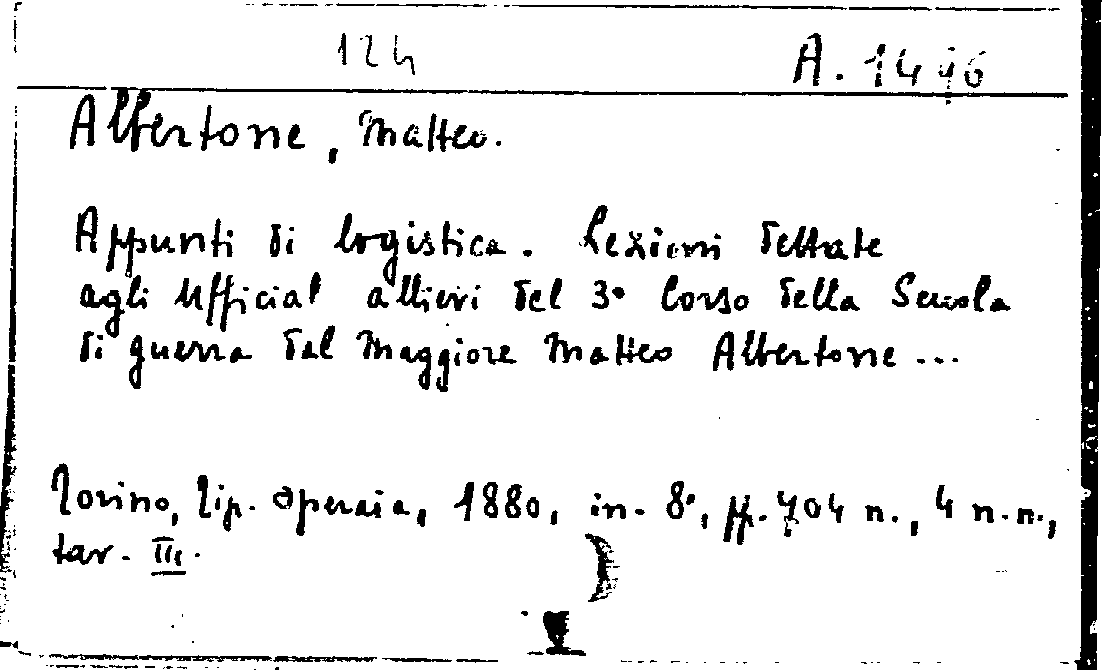 124 A. 1496
Albertone, Matteo.
Appunti di logistica. Lezioni dettate
agli Ufficiali allievi del 3° Corso della Scuola
di guerra dal Maggiore Matteo Albertone ...
Torino, Tip. Operaia, 1880, in-8°, pp. 704 n., 4 n.n.,
tav. III.